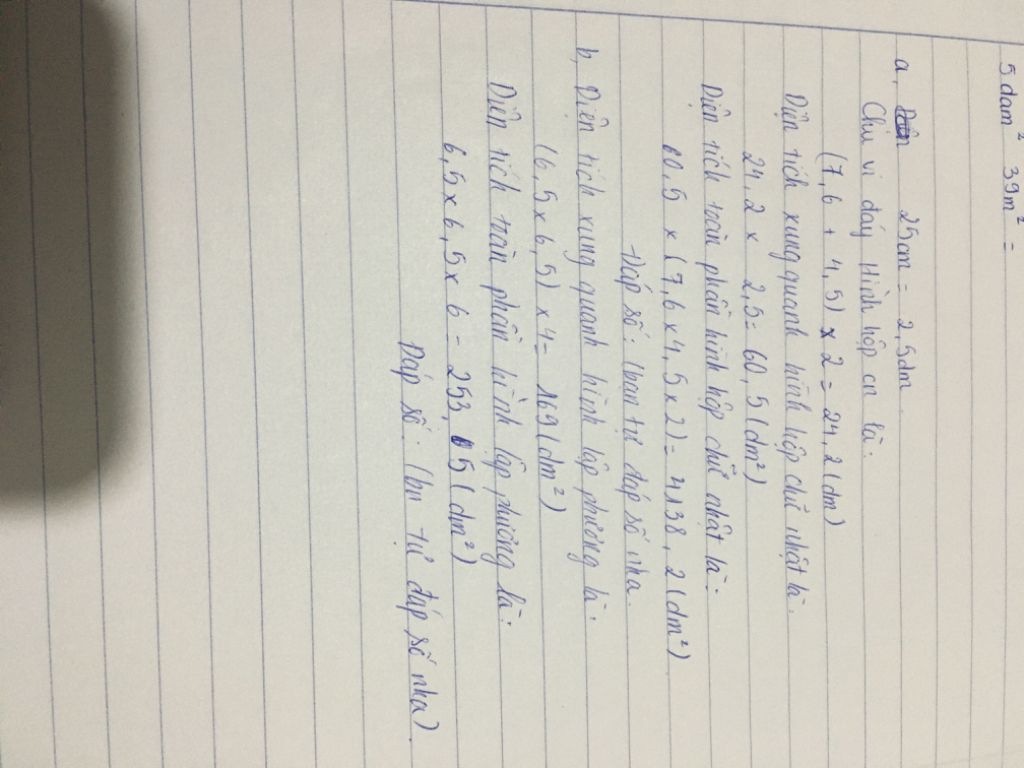 5dam² 39m² =
a, 25cm = 2,5dm
Chu vi đáy Hình hộp cn là:
(7,6 + 4,5) x 2 = 24,2 (dm)
Diện tích xung quanh hình hộp chữ nhật là:
24,2 x 2,5 = 60,5 (dm²)
Diện tích toàn phần hình hộp chữ nhật là:
60,5 x (7,6 x 4,5 x 2) = 4138,2 (dm²)
Đáp số: (bạn tự đáp số nha.
b, Diện tích xung quanh hình lập phương là:
(6,5 x 6,5) x 4 = 169 (dm²)
Diện tích toàn phần hình lập phương là:
6,5 x 6,5 x 6 = 253,5 (dm²)
Đáp số: (bn tự đáp số nha)